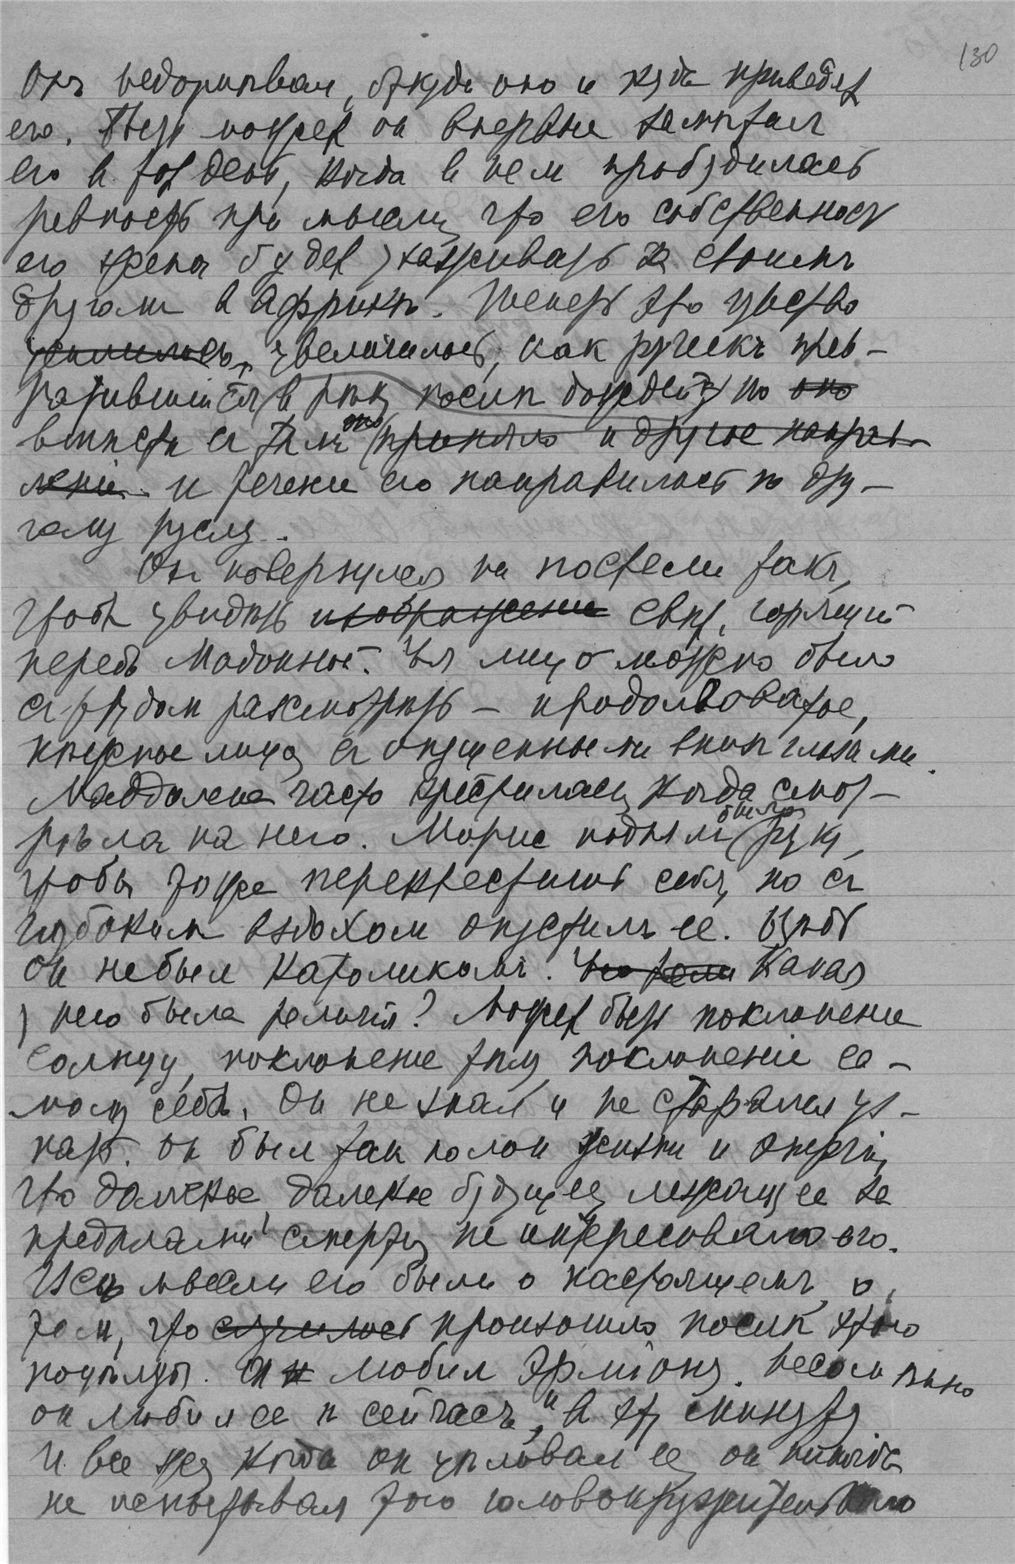 130
Онъ недоумѣвал, откуда оно и куда приведет
его. Быть может он впервые замѣтил
его в тот день, когда в нем пробудилась
ревность при мысли, что его собственность
его жена будет ухаживать за своимъ
другом в Африкѣ. Теперь это чувство
усилилось, увеличилось, как ручеекъ прев-
ратившийся в рѣку послѣ дождей, но оно
вмѣстѣ съ тѣмъ оно приняло и другое направ-
леніе. и теченіе его направилось по дру-
гому руслу.
Он повернулся на постели такъ,
чтобы увидѣть изображение свѣт, горящий
передъ Мадонной. Ея лицо можно было
съ трудом разсмотрѣть – продолговатое,
нѣжное лицо, съ опущенными вниз глазами.
Маддалена часто крестилась, когда смот-
рѣла на него. Морис поднял было руку,
чтобы тоже перекрестить себя, но съ
глубоким вздохом опустилъ ее. Вѣдь
он не был католикомъ. Какая
у него была религія? Может быть поклонение
солнцу, поклонение тѣлу, поклоненіе са-
мому себѣ. Он не знал и не старался уз-
нать. он был так полон жизни и энергіи,
что далекое далекое будущее, лежащее за
предѣлами смерти, не интересовало его.
Всѣ мысли его были о настоящемъ, о
том, что случилось произошло послѣ этого
поцѣлуя. Он любил Эрміону. Несомнѣнно
он любил ее и сейчасъ, и в эту минуту
И все же, когда он цѣловал ее, он никогда
не испытывал того головокружительного